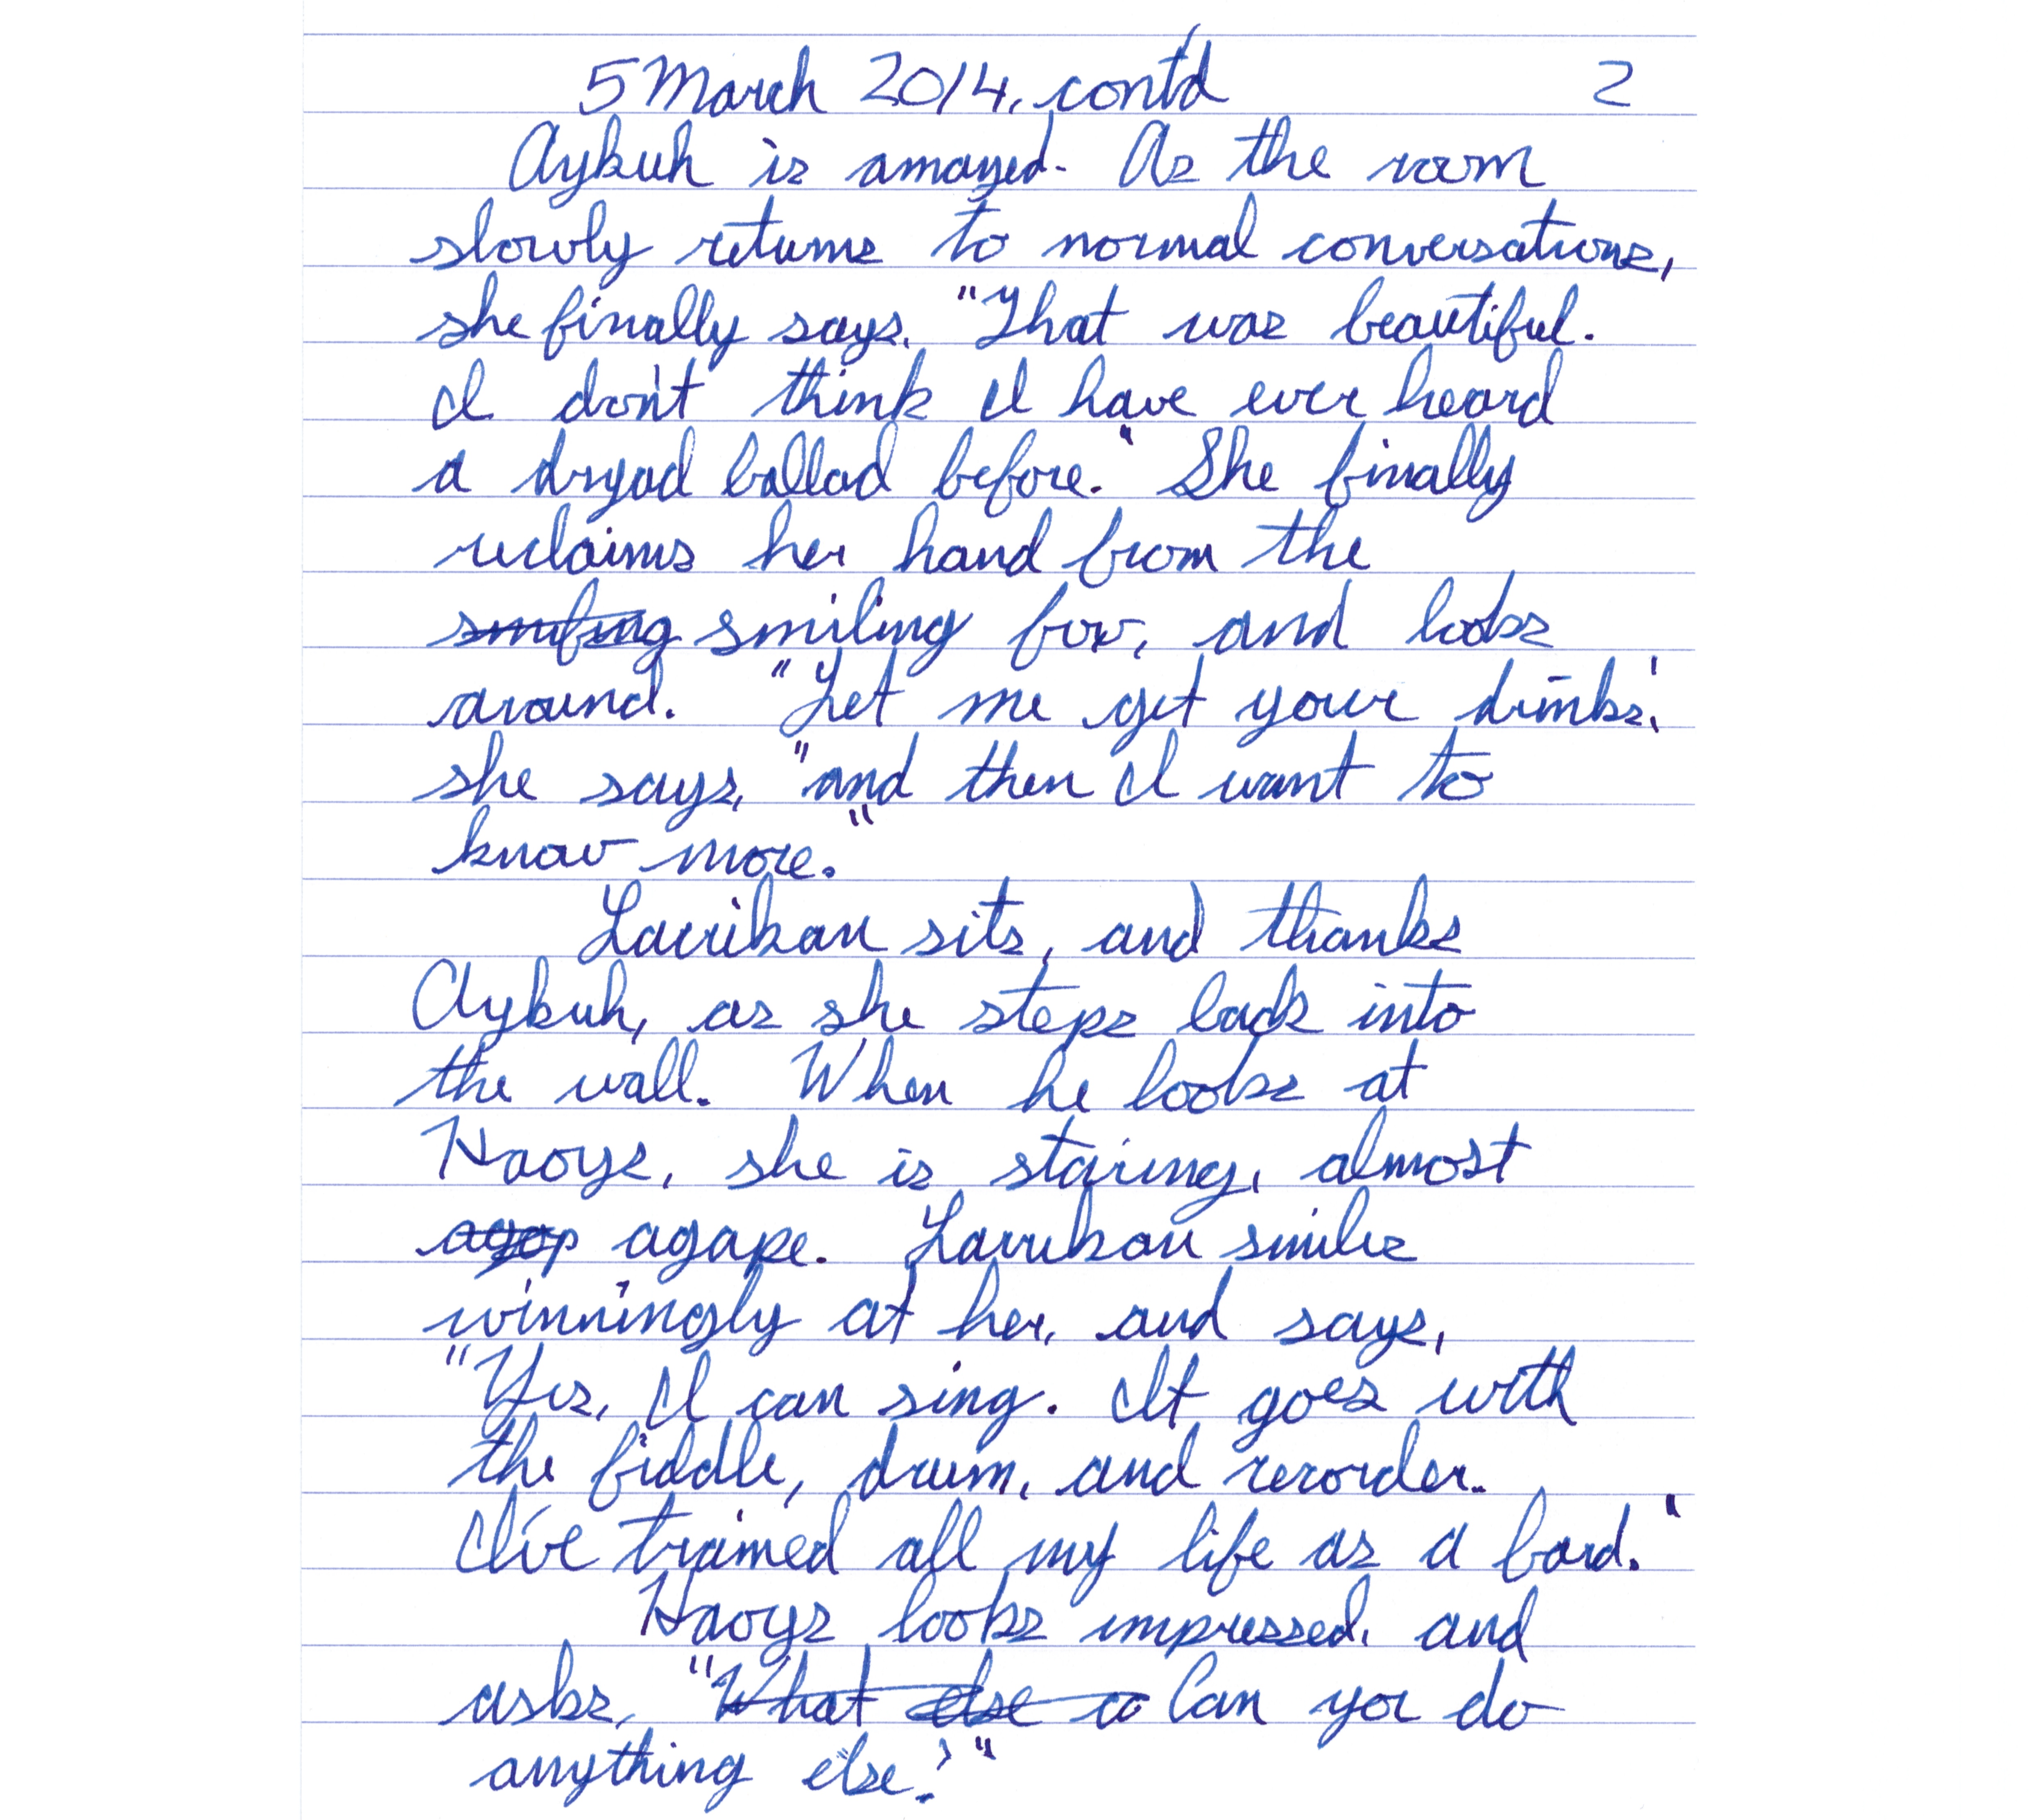 5 March 2014, cont'd 2
Aykuh is amazed. As the room
slowly returns to normal conversations,
she finally says, "That was beautiful.
I don't think I have ever heard
a dryad ballad before." She finally
reclaims her hand from the
smiling fox, and looks
around. "Let me get your drinks,"
she says, "and then I want to
know more."
Laurikan sits, and thanks
Aykuh, as she steps back into
the wall. When he looks at
Haoys, she is staring, almost
agap agape. Laurikan smiles
winningly at her, and says,
"Yes, I can sing. It goes with
the fiddle, drum, and recorder.
I've trained all my life as a bard."
Haoys looks impressed, and
asks, "What else c Can you do
anything else?"